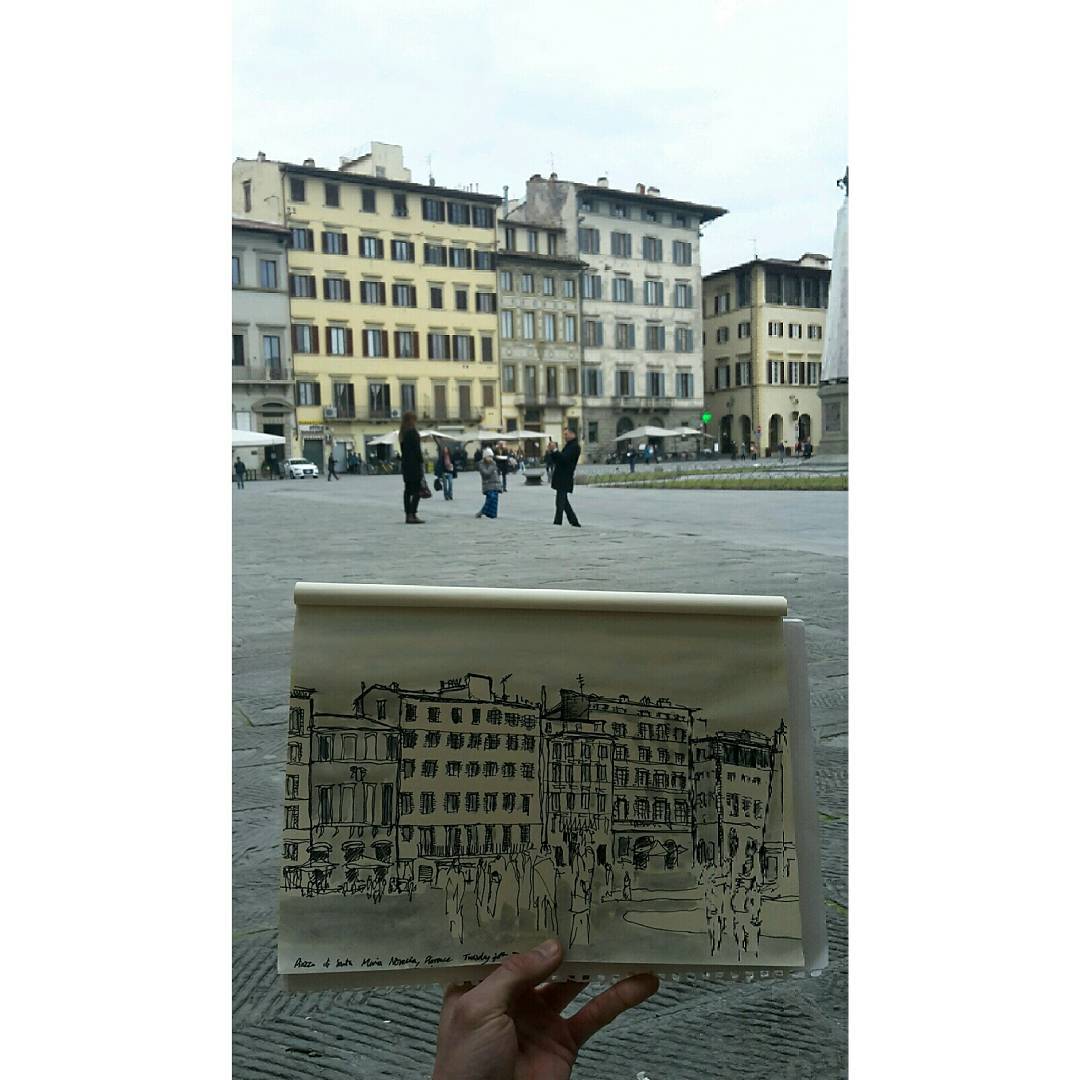 Piazza di Santa Maria Novella, Florence Tuesday